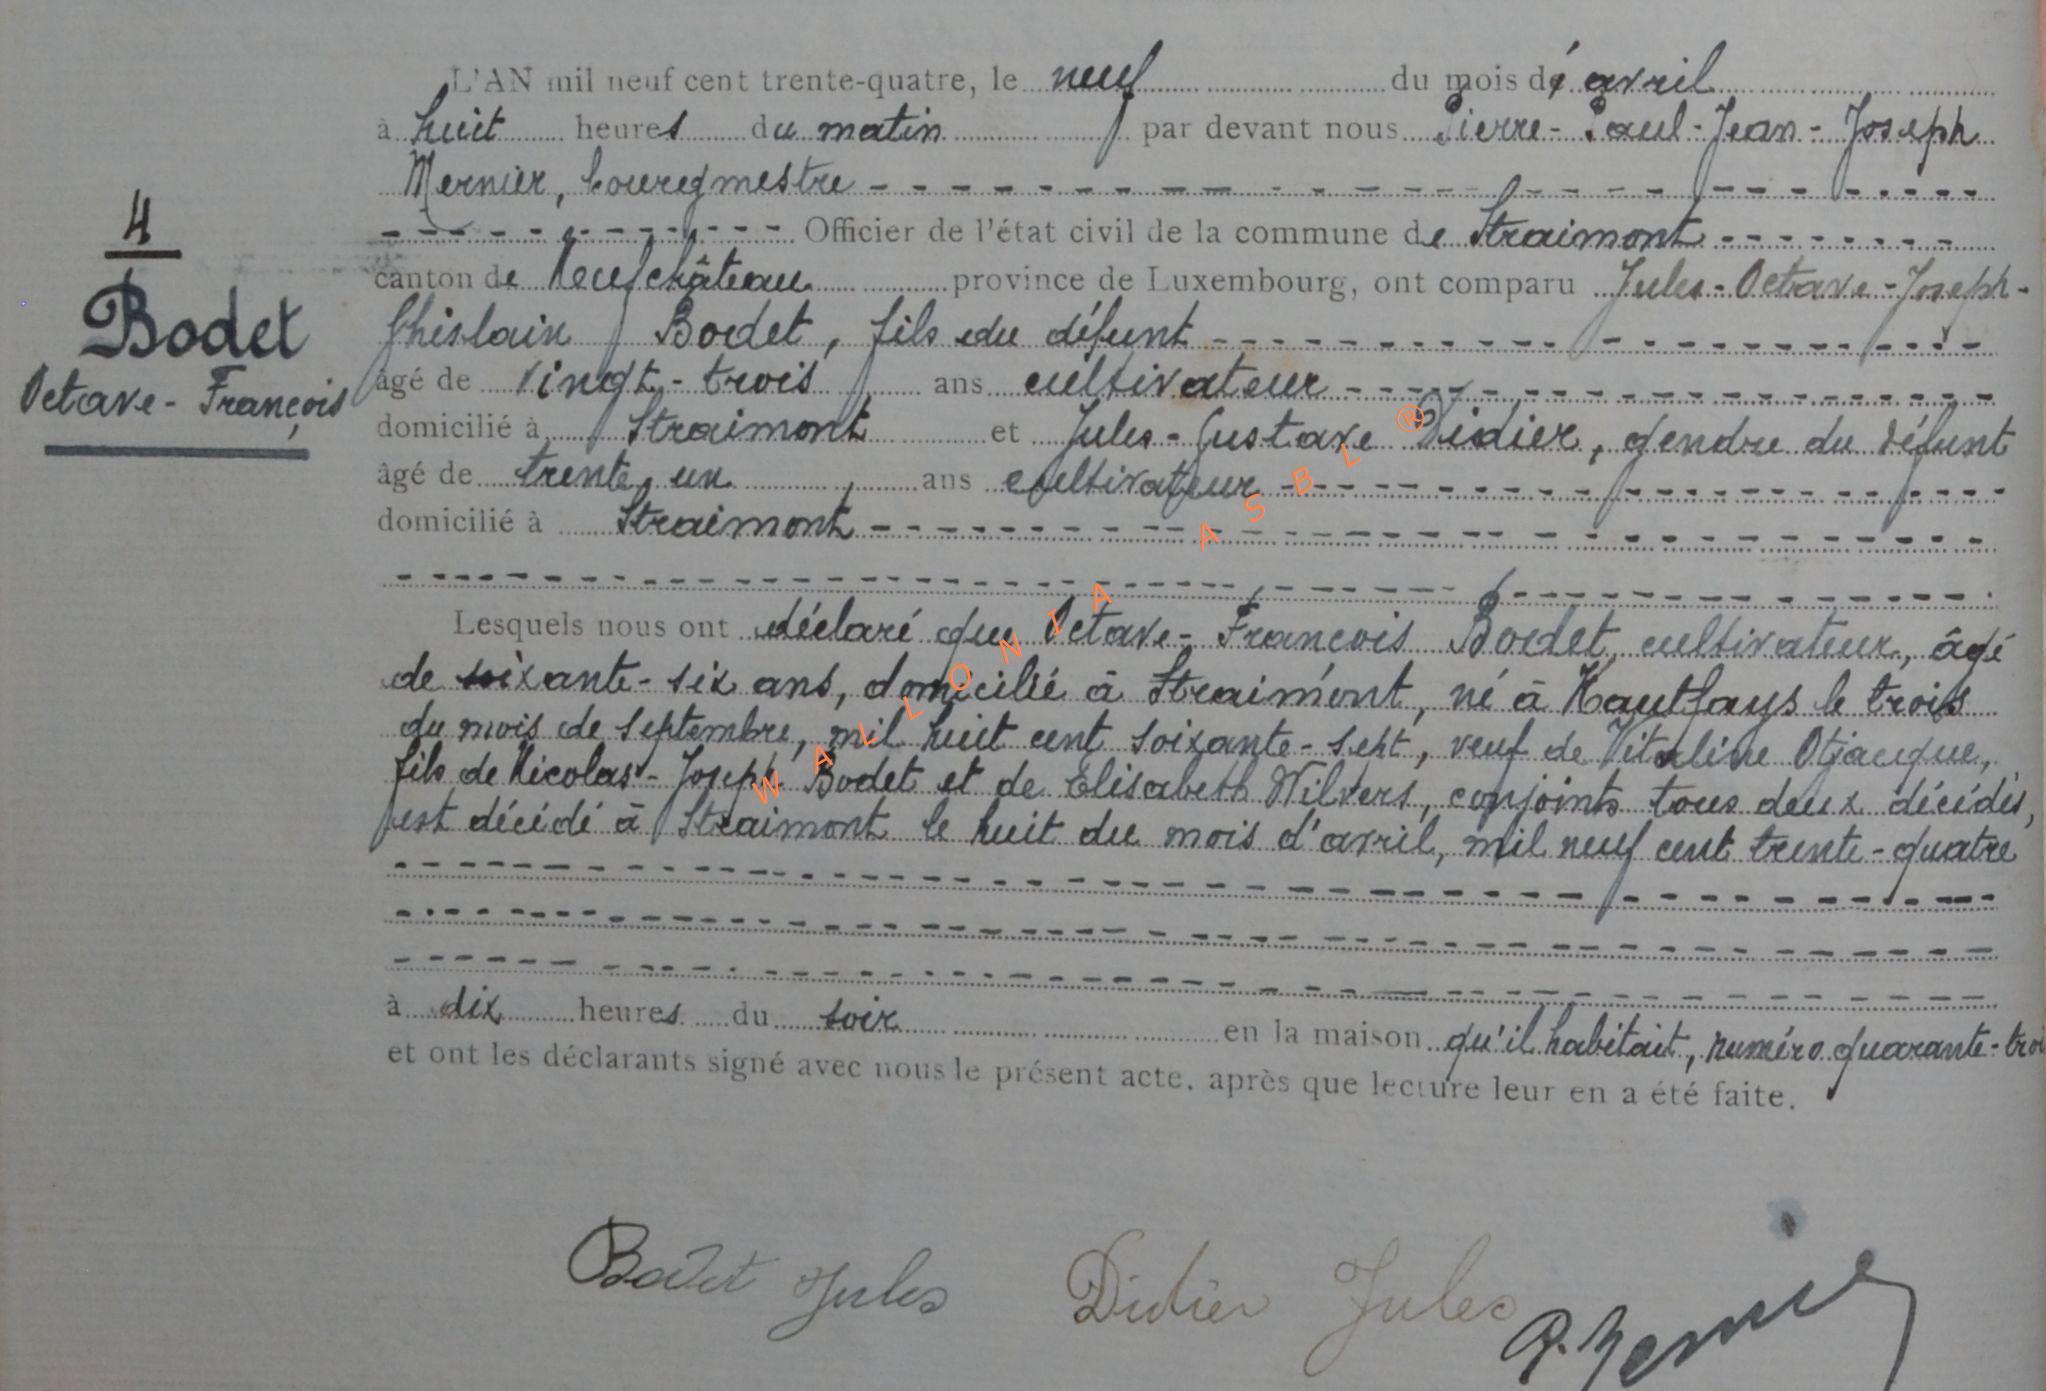 L'AN mil neuf cent trente-quatre, le neuf du mois d'avril
à huit heures du matin par devant nous Pierre-Paul-Jean-Joseph
Mernier, bourgmestre
4
Officier de l'état civil de la commune de Straimont
canton de Neufchâteau province de Luxembourg, ont comparu Jules-Octave-Joseph-
Bodet
Ghislain Bodet, fils du défunt
Octave-François
âgé de vingt-trois ans cultivateur
domicilié à Straimont et Jules-Gustave Didier, gendre du défunt
âgé de trente un ans cultivateur
domicilié à Straimont
Lesquels nous ont déclaré que Octave-François Bodet, cultivateur, âgé
de soixante-six ans, domicilié à Straimont, né à Hautfays le trois
du mois de septembre, mil huit cent soixante-sept, veuf de Vitaline Otjacque,
fils de Nicolas-Joseph Bodet et de Elisabeth Wilvers, conjoints tous deux décédés,
est décédé à Straimont le huit du mois d'avril, mil neuf cent trente-quatre
à dix heures du soir en la maison qu'il habitait, numéro quarante-troi
et ont les déclarants signé avec nous le présent acte, après que lecture leur en a été faite.
Bodet Jules Didier Jules P. Mernier
WALLONIA ASBL ®